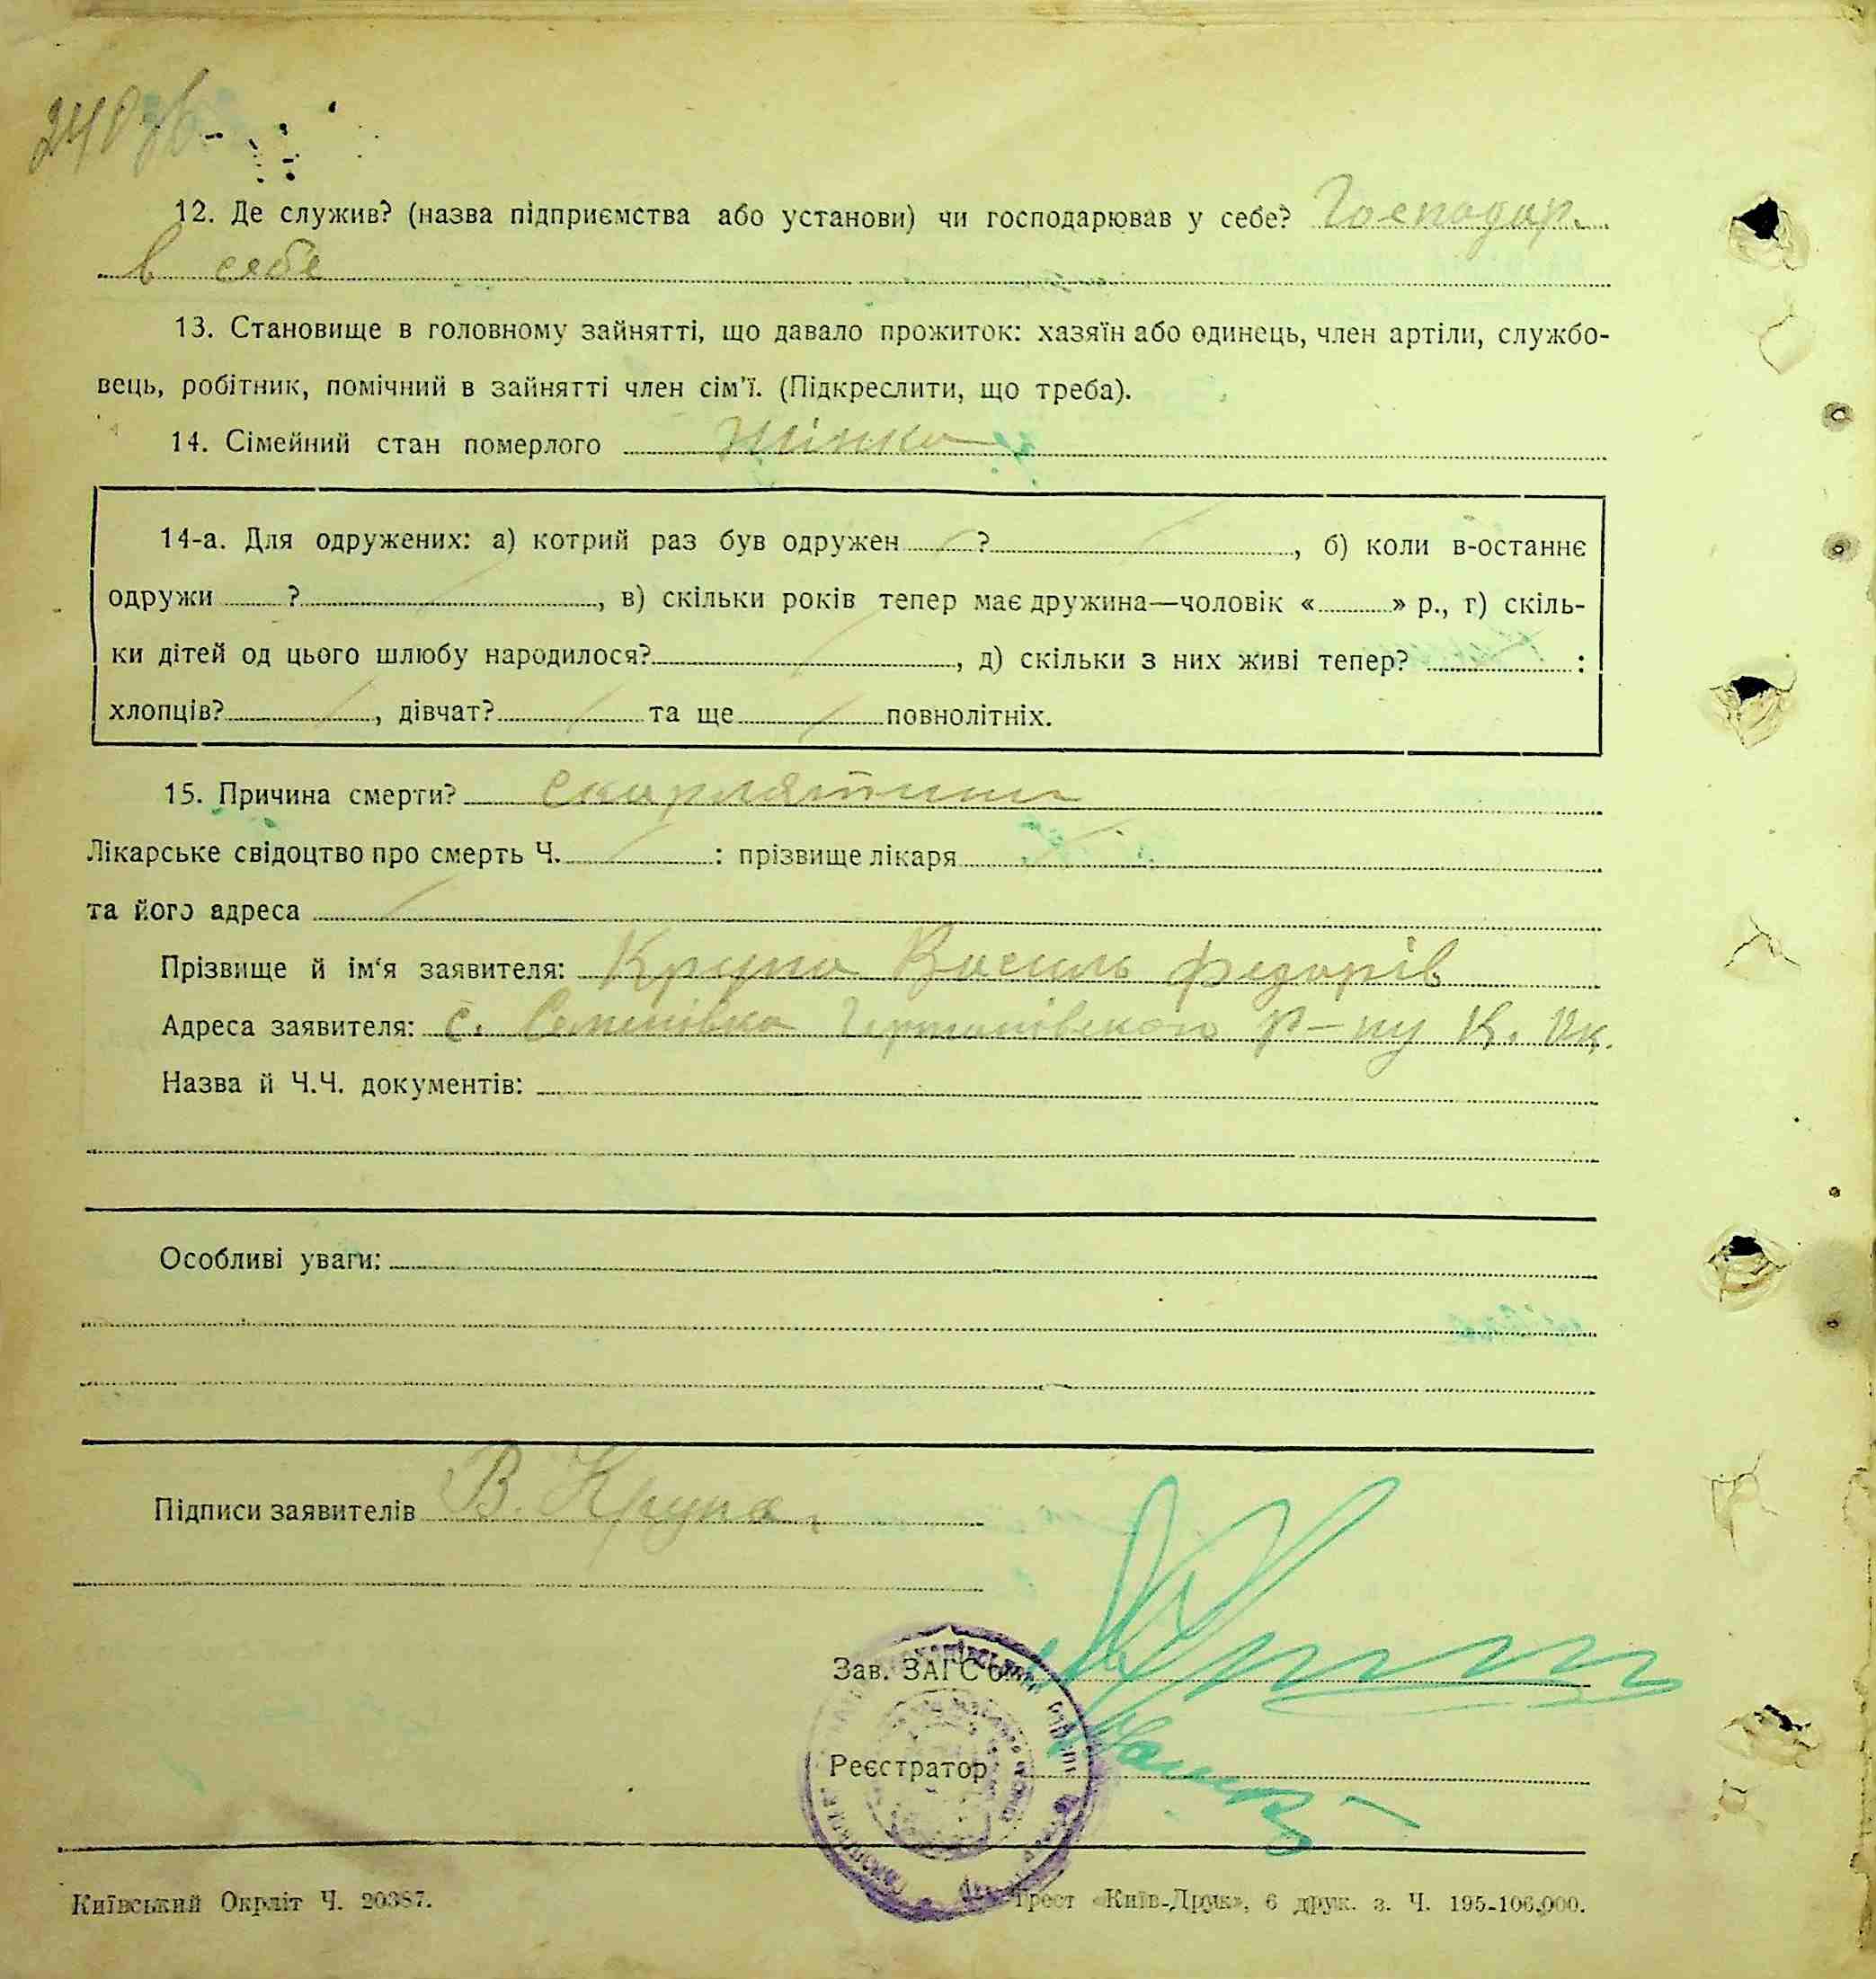 240 зв.
12. Де служив? (назва підприємства або установи) чи господарював у себе? Господар.
в себе
13. Становище в головному зайнятті, що давало прожиток: хазяїн або одинець, член артіли, службо-
вець, робітник, помічний в зайнятті член сім'ї. (Підкреслити, що треба).
14. Сімейний стан померлого
14-а. Для одружених: а) котрий раз був одружен ?, б) коли в-останнє
одружи ?, в) скільки років тепер має дружина—чоловік « » р., г) скіль-
ки дітей од цього шлюбу народилося?, д) скільки з них живі тепер? :
хлопців?, дівчат? та ще повнолітніх.
15. Причина смерти? скарлятина
Лікарське свідоцтво про смерть Ч. : прізвище лікаря
та його адреса
Прізвище й ім'я заявителя: Крупа Василь Федорів
Адреса заявителя: с. Семенівка р-ну К. Ок.
Назва й Ч.Ч. документів:
Особливі уваги:
Підписи заявителів В. Крупа
Зав. ЗАГС'ом
Реєстратор
Київський Окрліт Ч. 20387.
Трест «Київ-Друк», 6 друк. з. Ч. 195-106.000.